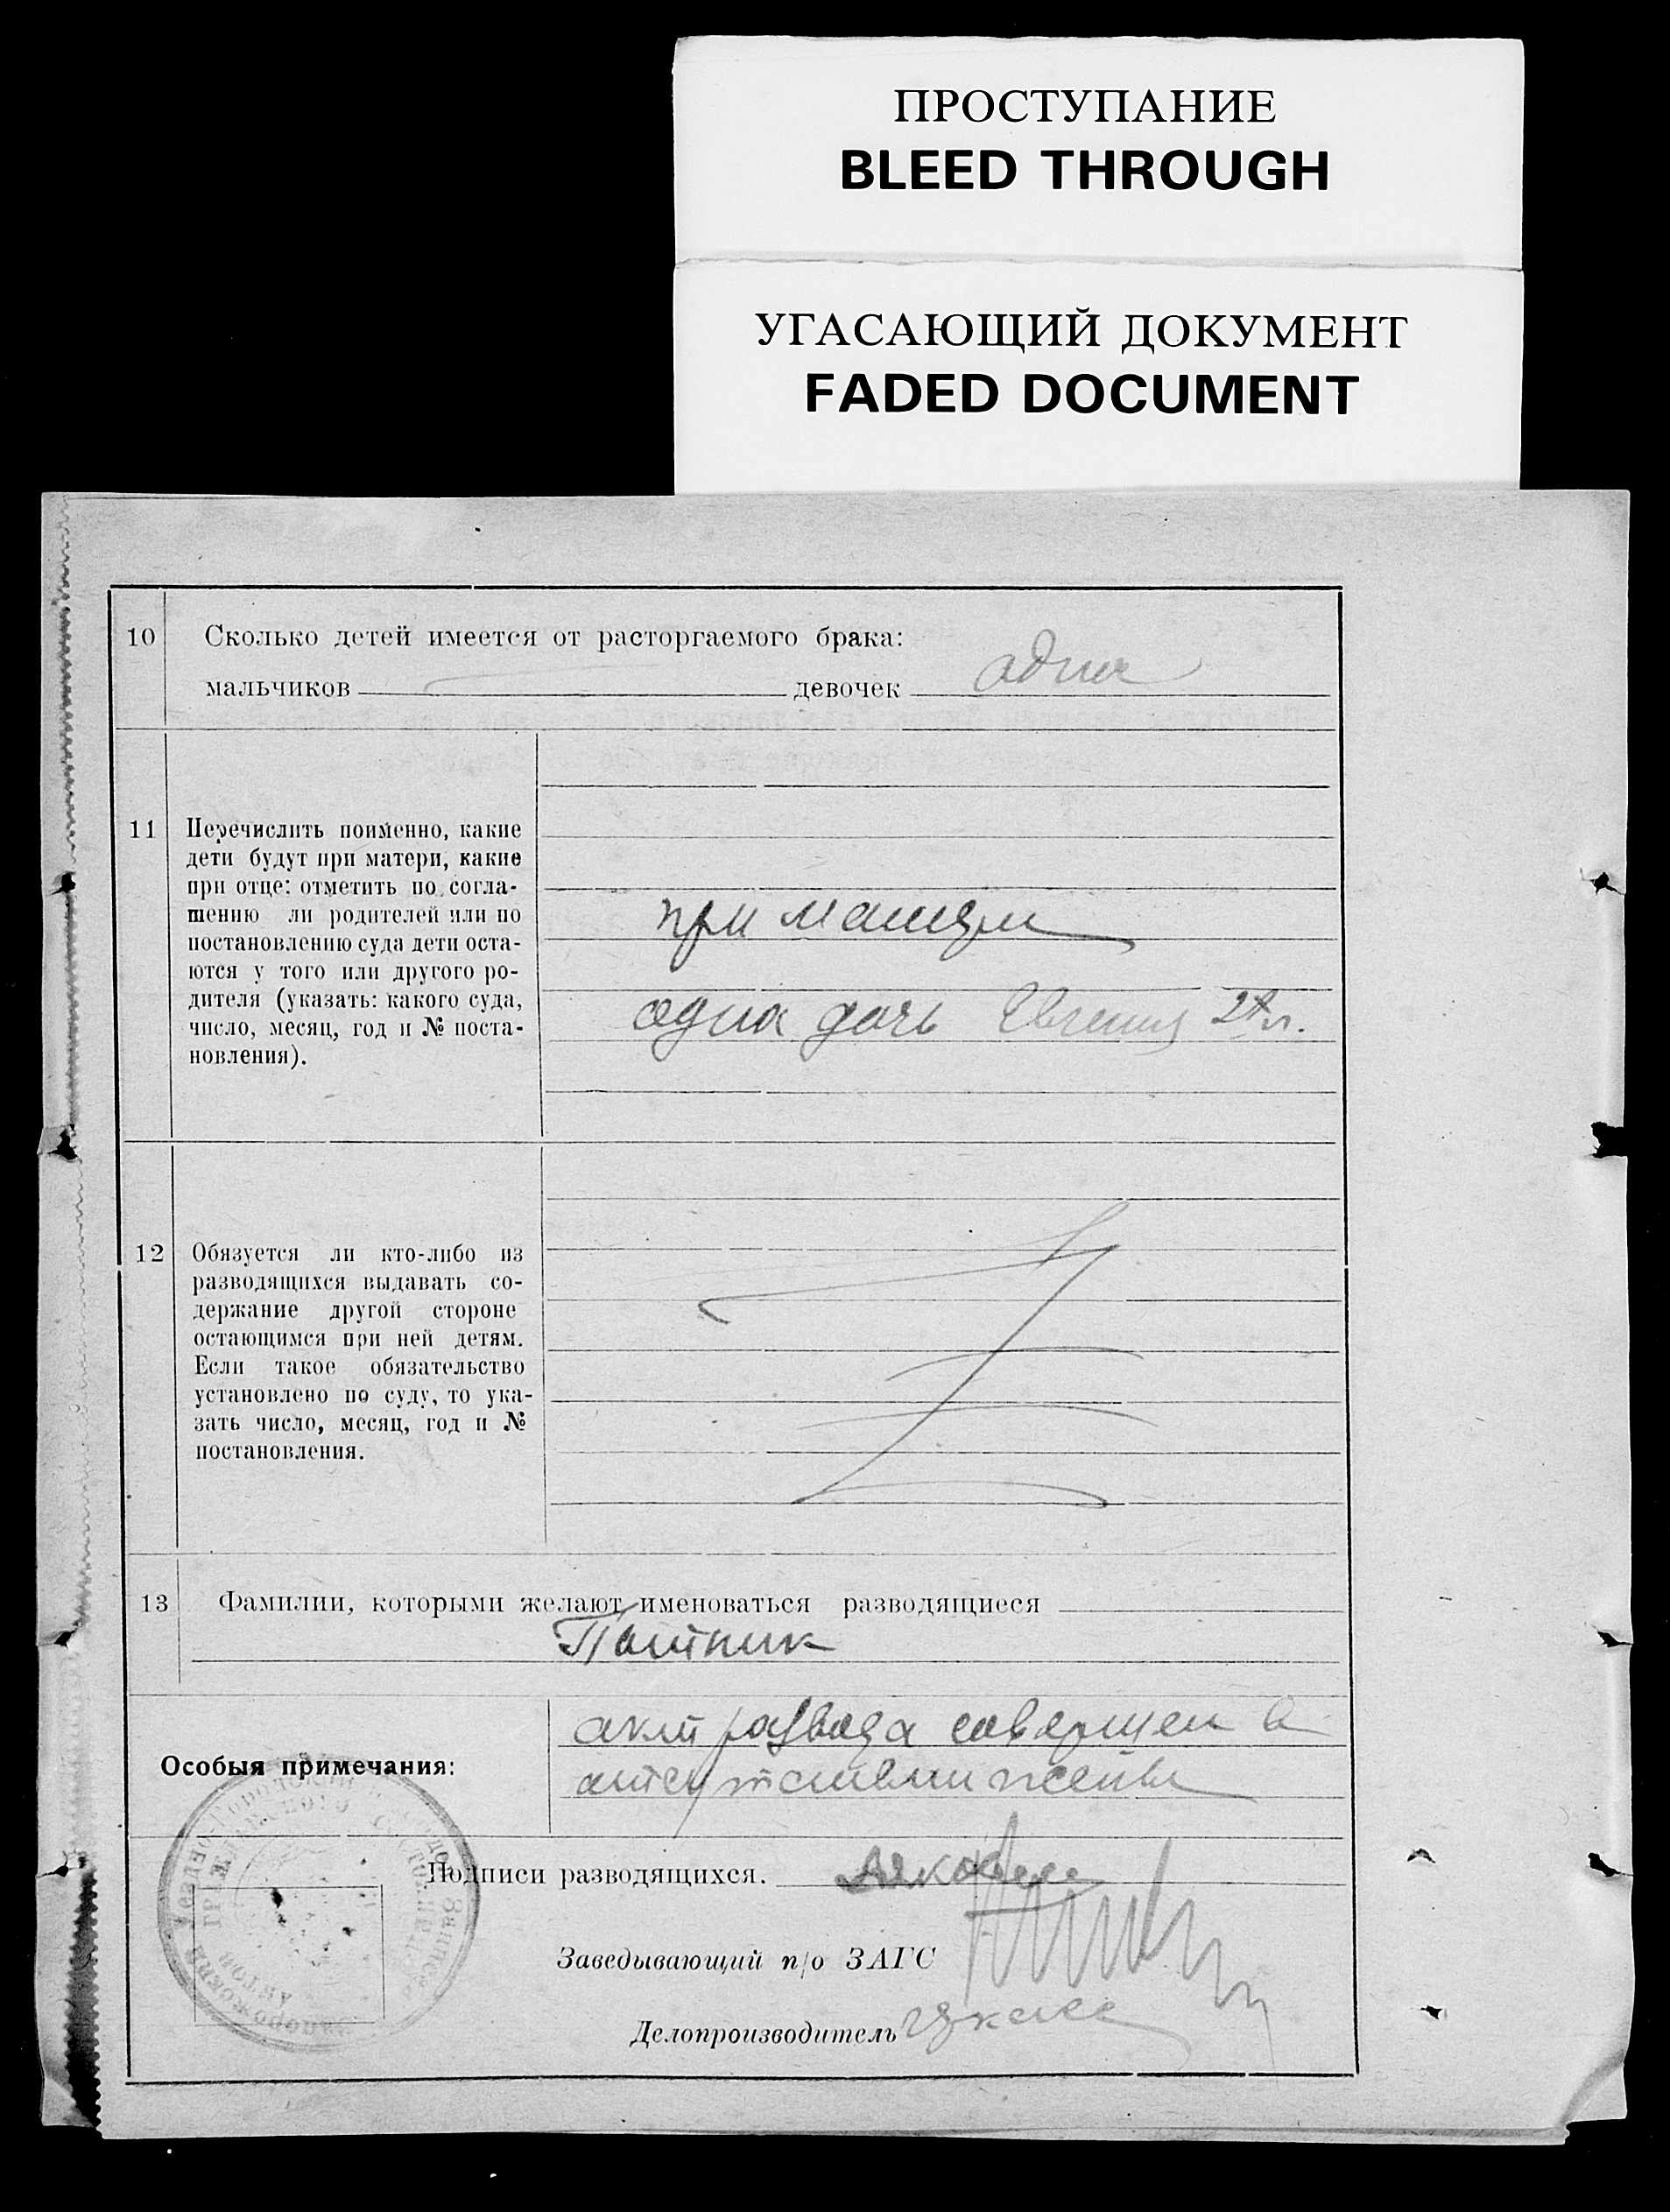 ПРОСТУПАНИЕ
BLEED THROUGH
УГАСАЮЩИЙ ДОКУМЕНТ
FADED DOCUMENT
10 Сколько детей имеется от расторгаемого брака:
мальчиков — девочек одна
11 Перечислить поименно, какие
дети будут при матери, какие
при отце: отметить по согла-
шению ли родителей или по
постановлению суда дети оста-
ются у того или другого ро-
дителя (указать: какого суда,
число, месяц, год и № поста-
новления).
при матери
одна дочь Евгения
12 Обязуется ли кто-либо из
разводящихся выдавать со-
держание другой стороне
остающимся при ней детям.
Если такое обязательство
установлено по суду, то ука-
зать число, месяц, год и №
постановления.
13 Фамилии, которыми желают именоваться разводящиеся
Особыя примечания:
акт развода совершен в
отсутствии жены
Подписи разводящихся.
Заведывающий п/о ЗАГС
Делопроизводитель